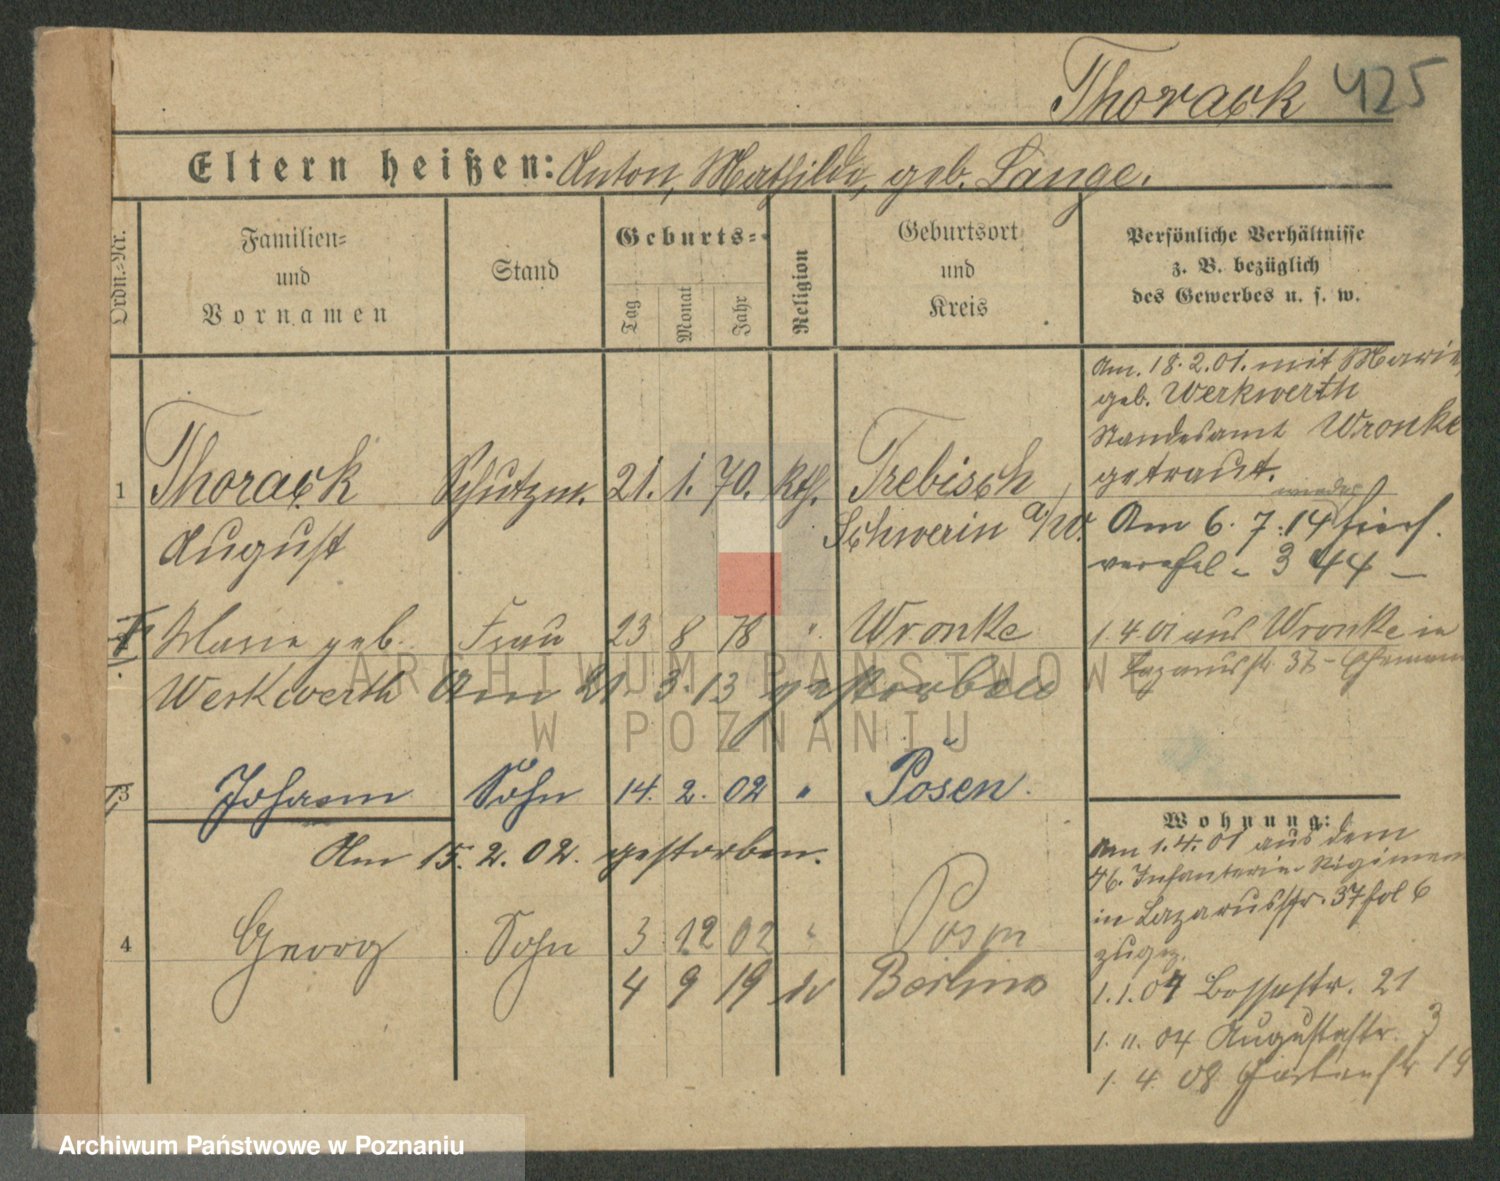 Thorack 425
Eltern heißen: Anton, Mathilde, geb. Lange.
Ordn.-Nr.
Familien- und Vornamen
Stand
Geburts-
Tag
Monat
Jahr
Religion
Geburtsort und Kreis
Persönliche Verhältnisse
z. B. bezüglich
des Gewerbes u. s. w.
Am. 18.2.01. mit Marie,
geb. Werkwerth
Standesamt Wronke
getraut.
wieder
Am 6.7.14 hier
3 44 –
1 Thorack Schutzm. 21. 1. 70. Kth. Trebisch,
August Schwerin a/W.
Marie geb. Frau 23 8 78 " Wronke
Werkwerth Am 21. 3. 13 gestorben
1.4.01 aus Wronke in
Lazarusstr. 37 – Ehemann
3 Johann Sohn 14. 2. 02 " Posen.
Am 15.2.02. gestorben.
4 Georg Sohn 3 12 02 " Posen
4 9 19 do Berlin
Wohnung:
Am 1.4.01 aus dem
46. Infanterie-Regiment
in Lazarusstr. 37 fol 6
zugez.
1.1.04 21
1.11.04 Augustastr. 3
1.4.08 Gartenstr 19
ARCHIWUM PAŃSTWOWE
W POZNANIU
Archiwum Państwowe w Poznaniu